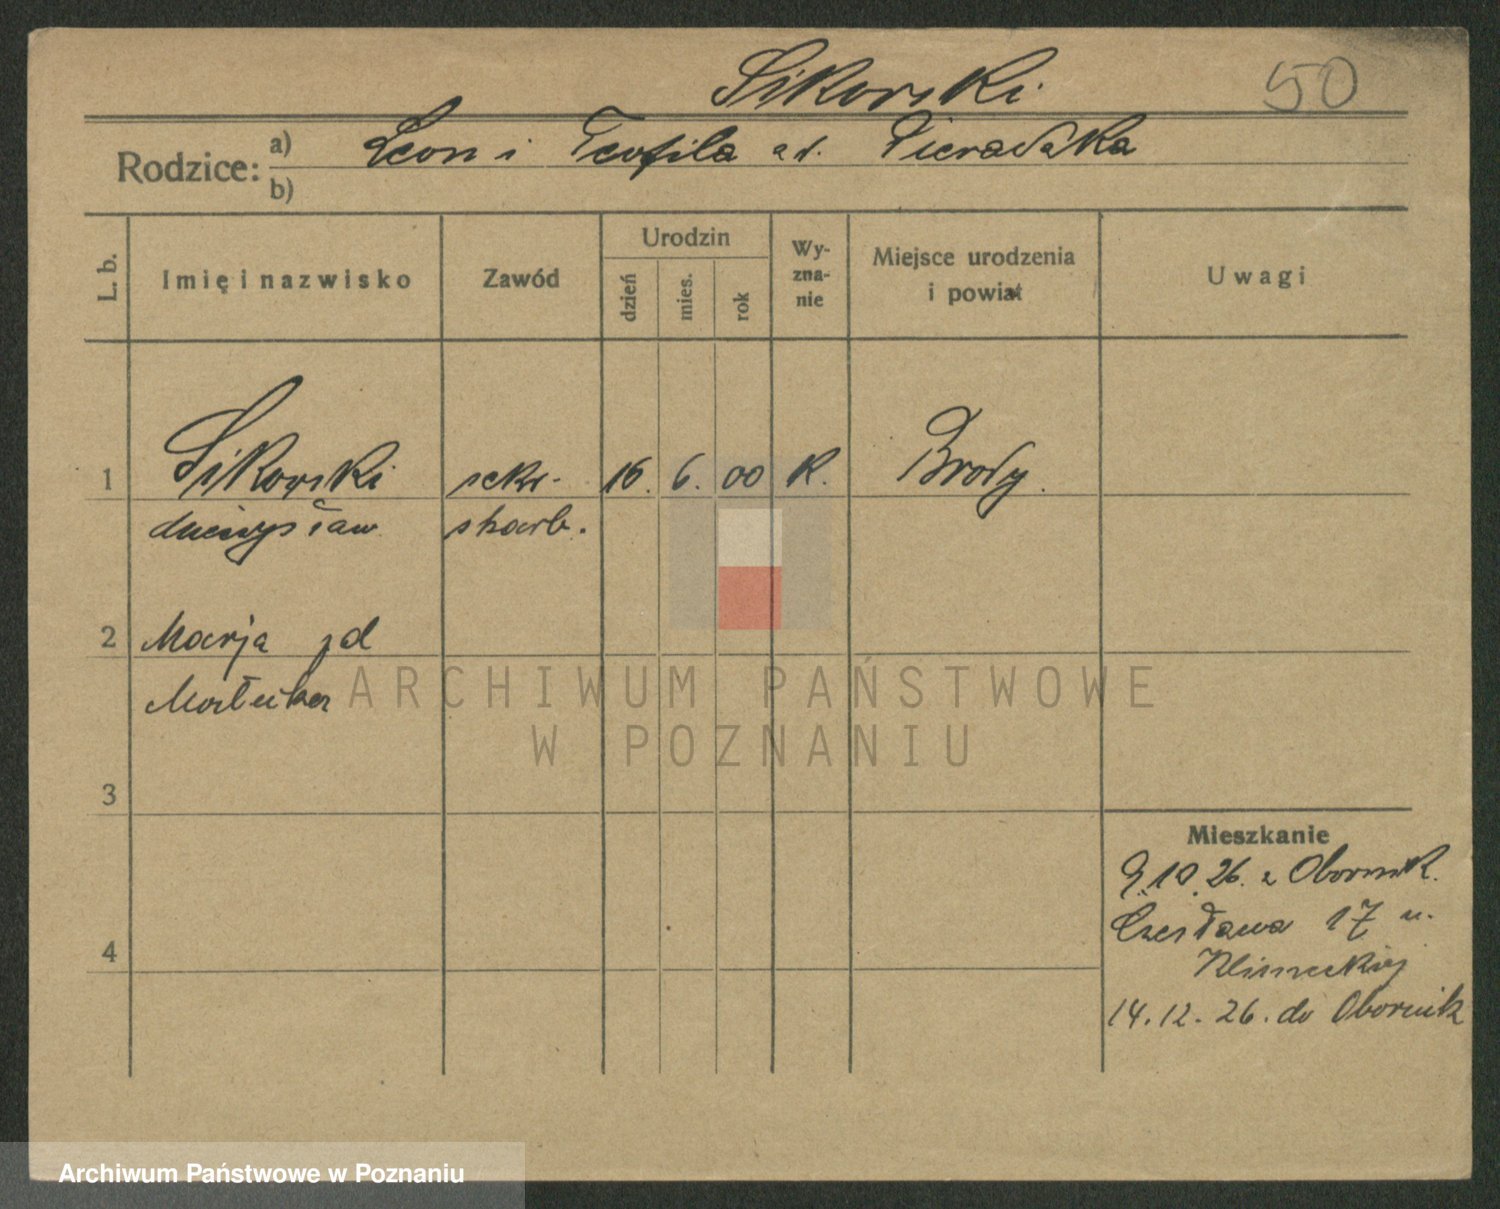 Sikorski
50
Rodzice: a) Leon i Teofila z d. Pieradzka
b)
L. b. Imię i nazwisko Zawód Urodzin dzień mies. rok Wy-zna-nie Miejsce urodzenia i powiat Uwagi
1 Sikorski sekr. 16. 6. 00 K. Brody.
skarb.
2 Marja zd
3
4
Mieszkanie
9.10.26. z Obornik.
Czesława 17 u.
Klimeckiej
14.12.26. do Obornik
ARCHIWUM PAŃSTWOWE
W POZNANIU
Archiwum Państwowe w Poznaniu